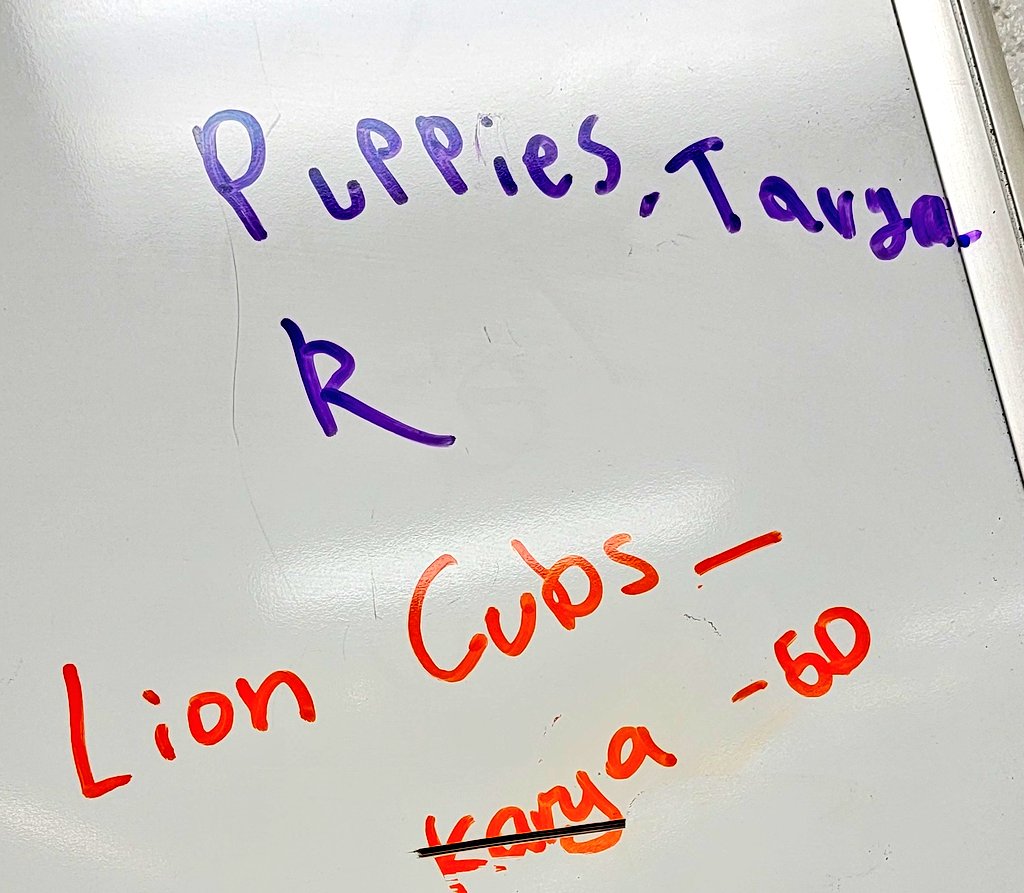 Puppies. Tarya.
R
Lion Cubs -
Karya - 60